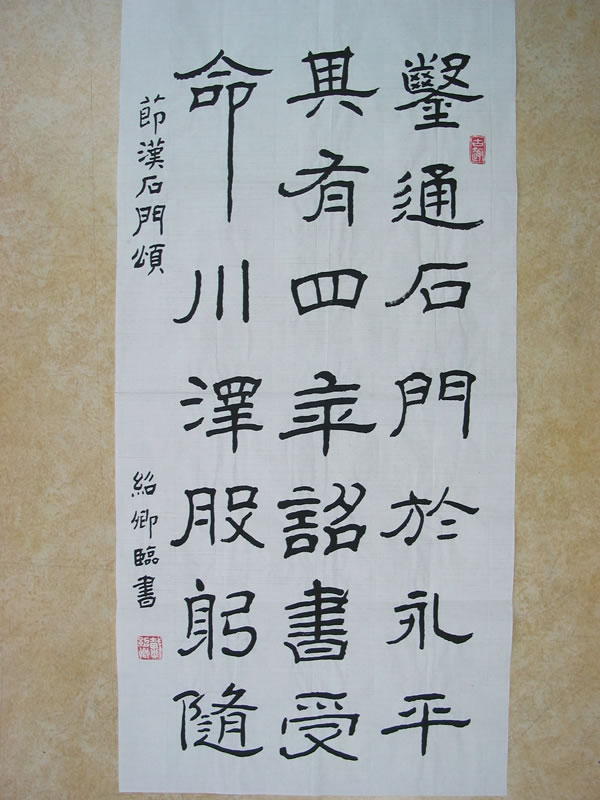 鑿通石門於永平
其有四年詔書受
命川澤股躬隨
節漢石門頌
紹卿臨書